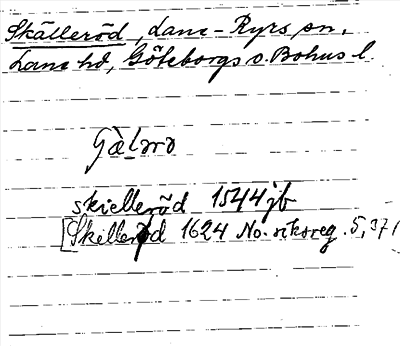 Skälleröd, Lane-Ryrs sn,
Lane hd, Göteborgs o. Bohus l.
skielleröd 1544 jb
[Skelleröd 1624 No. riksreg. 5,371